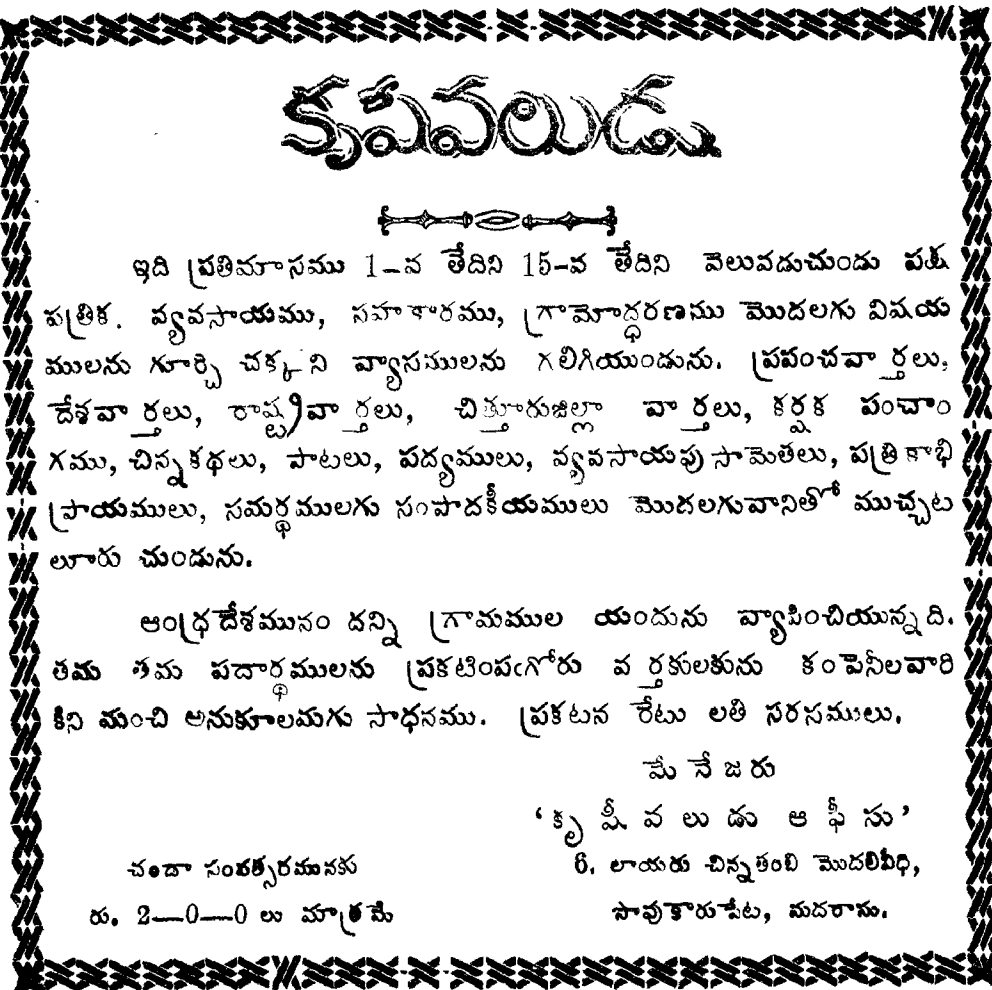 కృషీవలుడు
ఇది ప్రతిమాసము 1-వ తేదిని 15-వ తేదిని వెలువడుచుండు పక్ష
పత్రిక. వ్యవసాయము, సహకారము, గ్రామోద్ధరణము మొదలగు విషయ
ములను గూర్చి చక్కని వ్యాసములను గలిగియుండును. ప్రపంచవార్తలు,
దేశవార్తలు, రాష్ట్రీవార్తలు, చిత్తూరుజిల్లా వార్తలు, కర్షక పంచాం
గము, చిన్నకథలు, పాటలు, పద్యములు, వ్యవసాయపు సామెతలు, పత్రికాభి
ప్రాయములు, సమర్థములగు సంపాదకీయములు మొదలగువానితో ముచ్చట
లూరు చుండును.
ఆంధ్రదేశమునం దన్ని గ్రామముల యందును వ్యాపించియున్నది.
తమ తమ పదార్థములను ప్రకటింపఁగోరు వర్తకులకును కంపెనీలవారి
కిని మంచి అనుకూలమగు సాధనము. ప్రకటన రేటు లతి సరసములు.
మేనేజరు
‘కృషీవలుడు ఆఫీసు’
చందా సంవత్సరమునకు
రు. 2—0—0 లు మాత్రమే
6, లాయరు చిన్నతంబి మొదలివీధి,
సావుకారుపేట, మదరాసు.